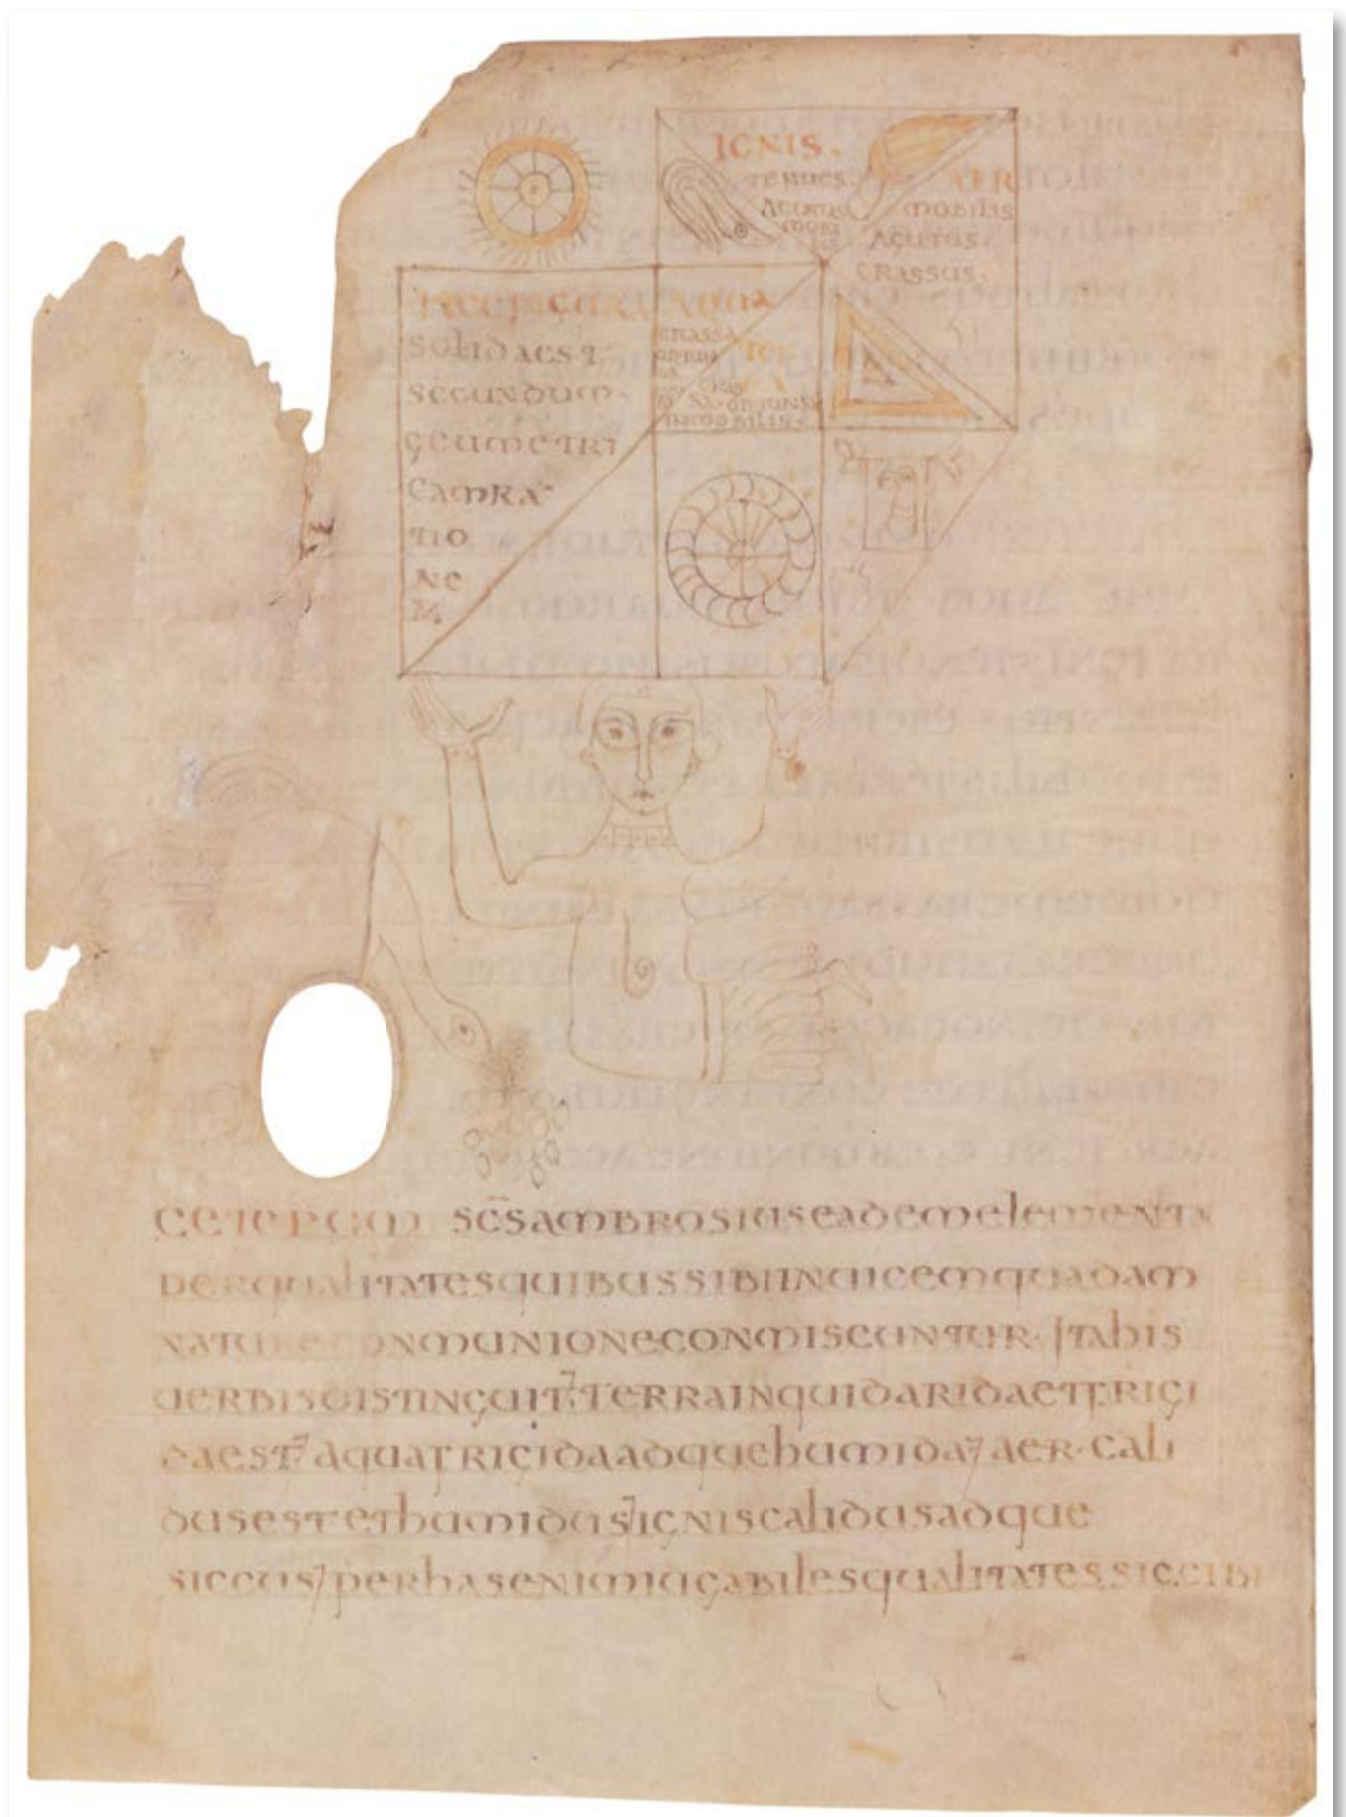 IGNIS.
TENUES.
ACUTUS
MOBI
LIS
AER
MOBILIS
ACUTUS.
CRASSUS.
HEC FIGURA
SOLIDA EST
SECUNDUM
GEUMETRI
CAMRA
TIO
NE
M
AQUA
CRASSA
TER
RA
INMOBILIS.
CETERUM SC̄S AMBROSIUS EADEM ELEMENTA
PER QUALITATES QUIBUS SIBI INUICEM QUADAM
NATURE CONMUNIONE CONMISCUNTUR. ITA HIS
UERBIS DISTINGUIT. TERRA INQUID ARIDA ET FRIGI
DA EST AQUA FRIGIDA ADQUE HUMIDA AER. CALI
DUS EST ET HUMIDUS IGNIS CALIDUS ADQUE
SICCUS PER HAS ENIM IUGABILES QUALITATES SIC SIBI